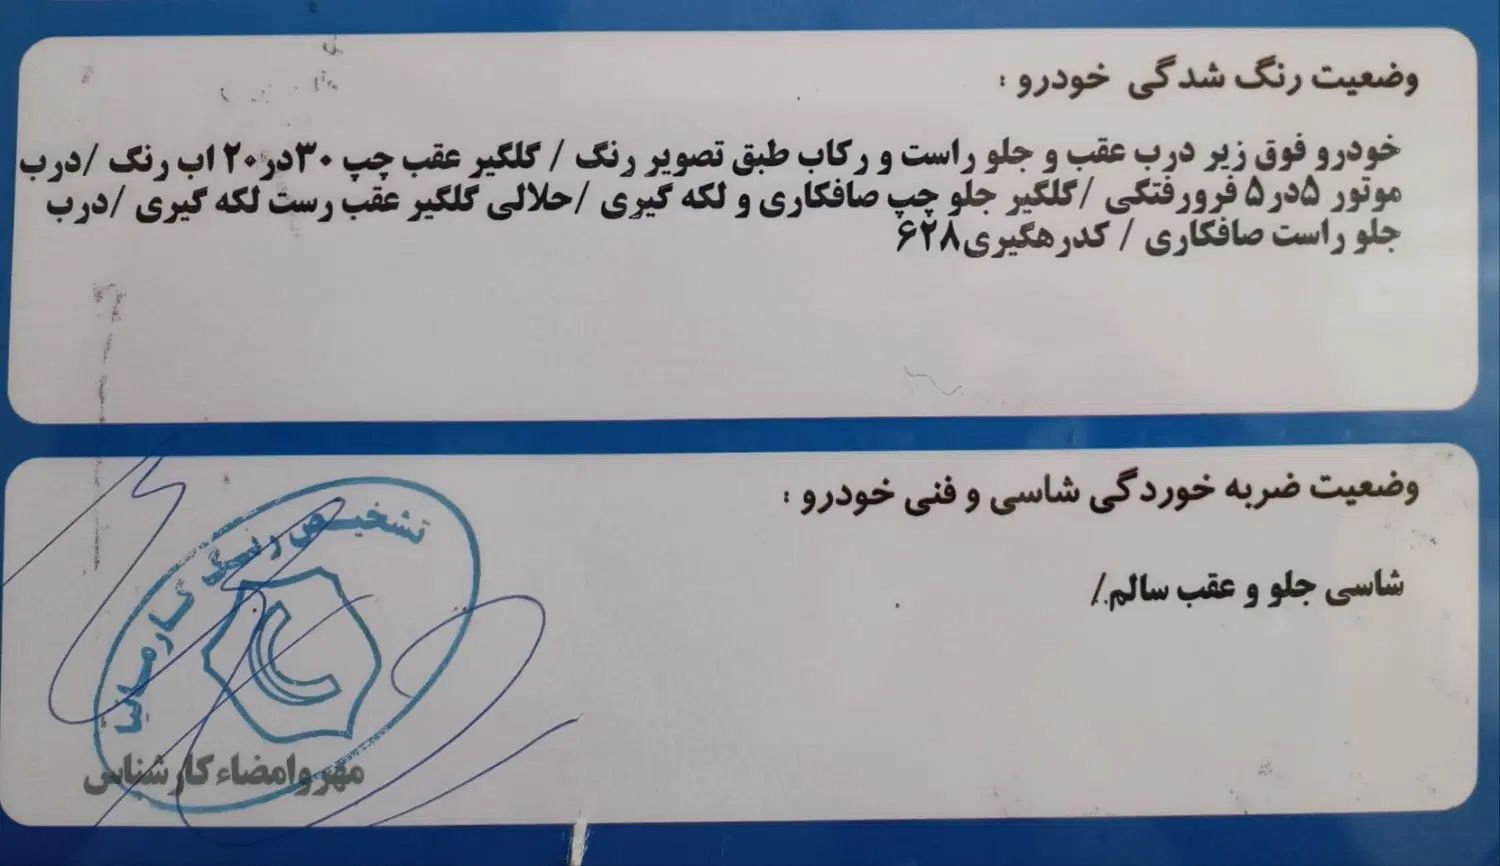 وضعیت رنگ شدگی خودرو :
خودرو فوق زیر درب عقب و جلو راست و رکاب طبق تصویر رنگ / گلگیر عقب چپ ۳۰در۲۰ اب رنگ /درب
موتور ۵در۵ فرورفتگی /گلگیر جلو چپ صافکاری و لکه گیری /حلالی گلگیر عقب رست لکه گیری /درب
جلو راست صافکاری / کدرهگیری۶۲۸
وضعیت ضربه خوردگی شاسی و فنی خودرو :
شاسی جلو و عقب سالم./
تشخیص رنگ کارمانیا
مهروامضاءکارشناس